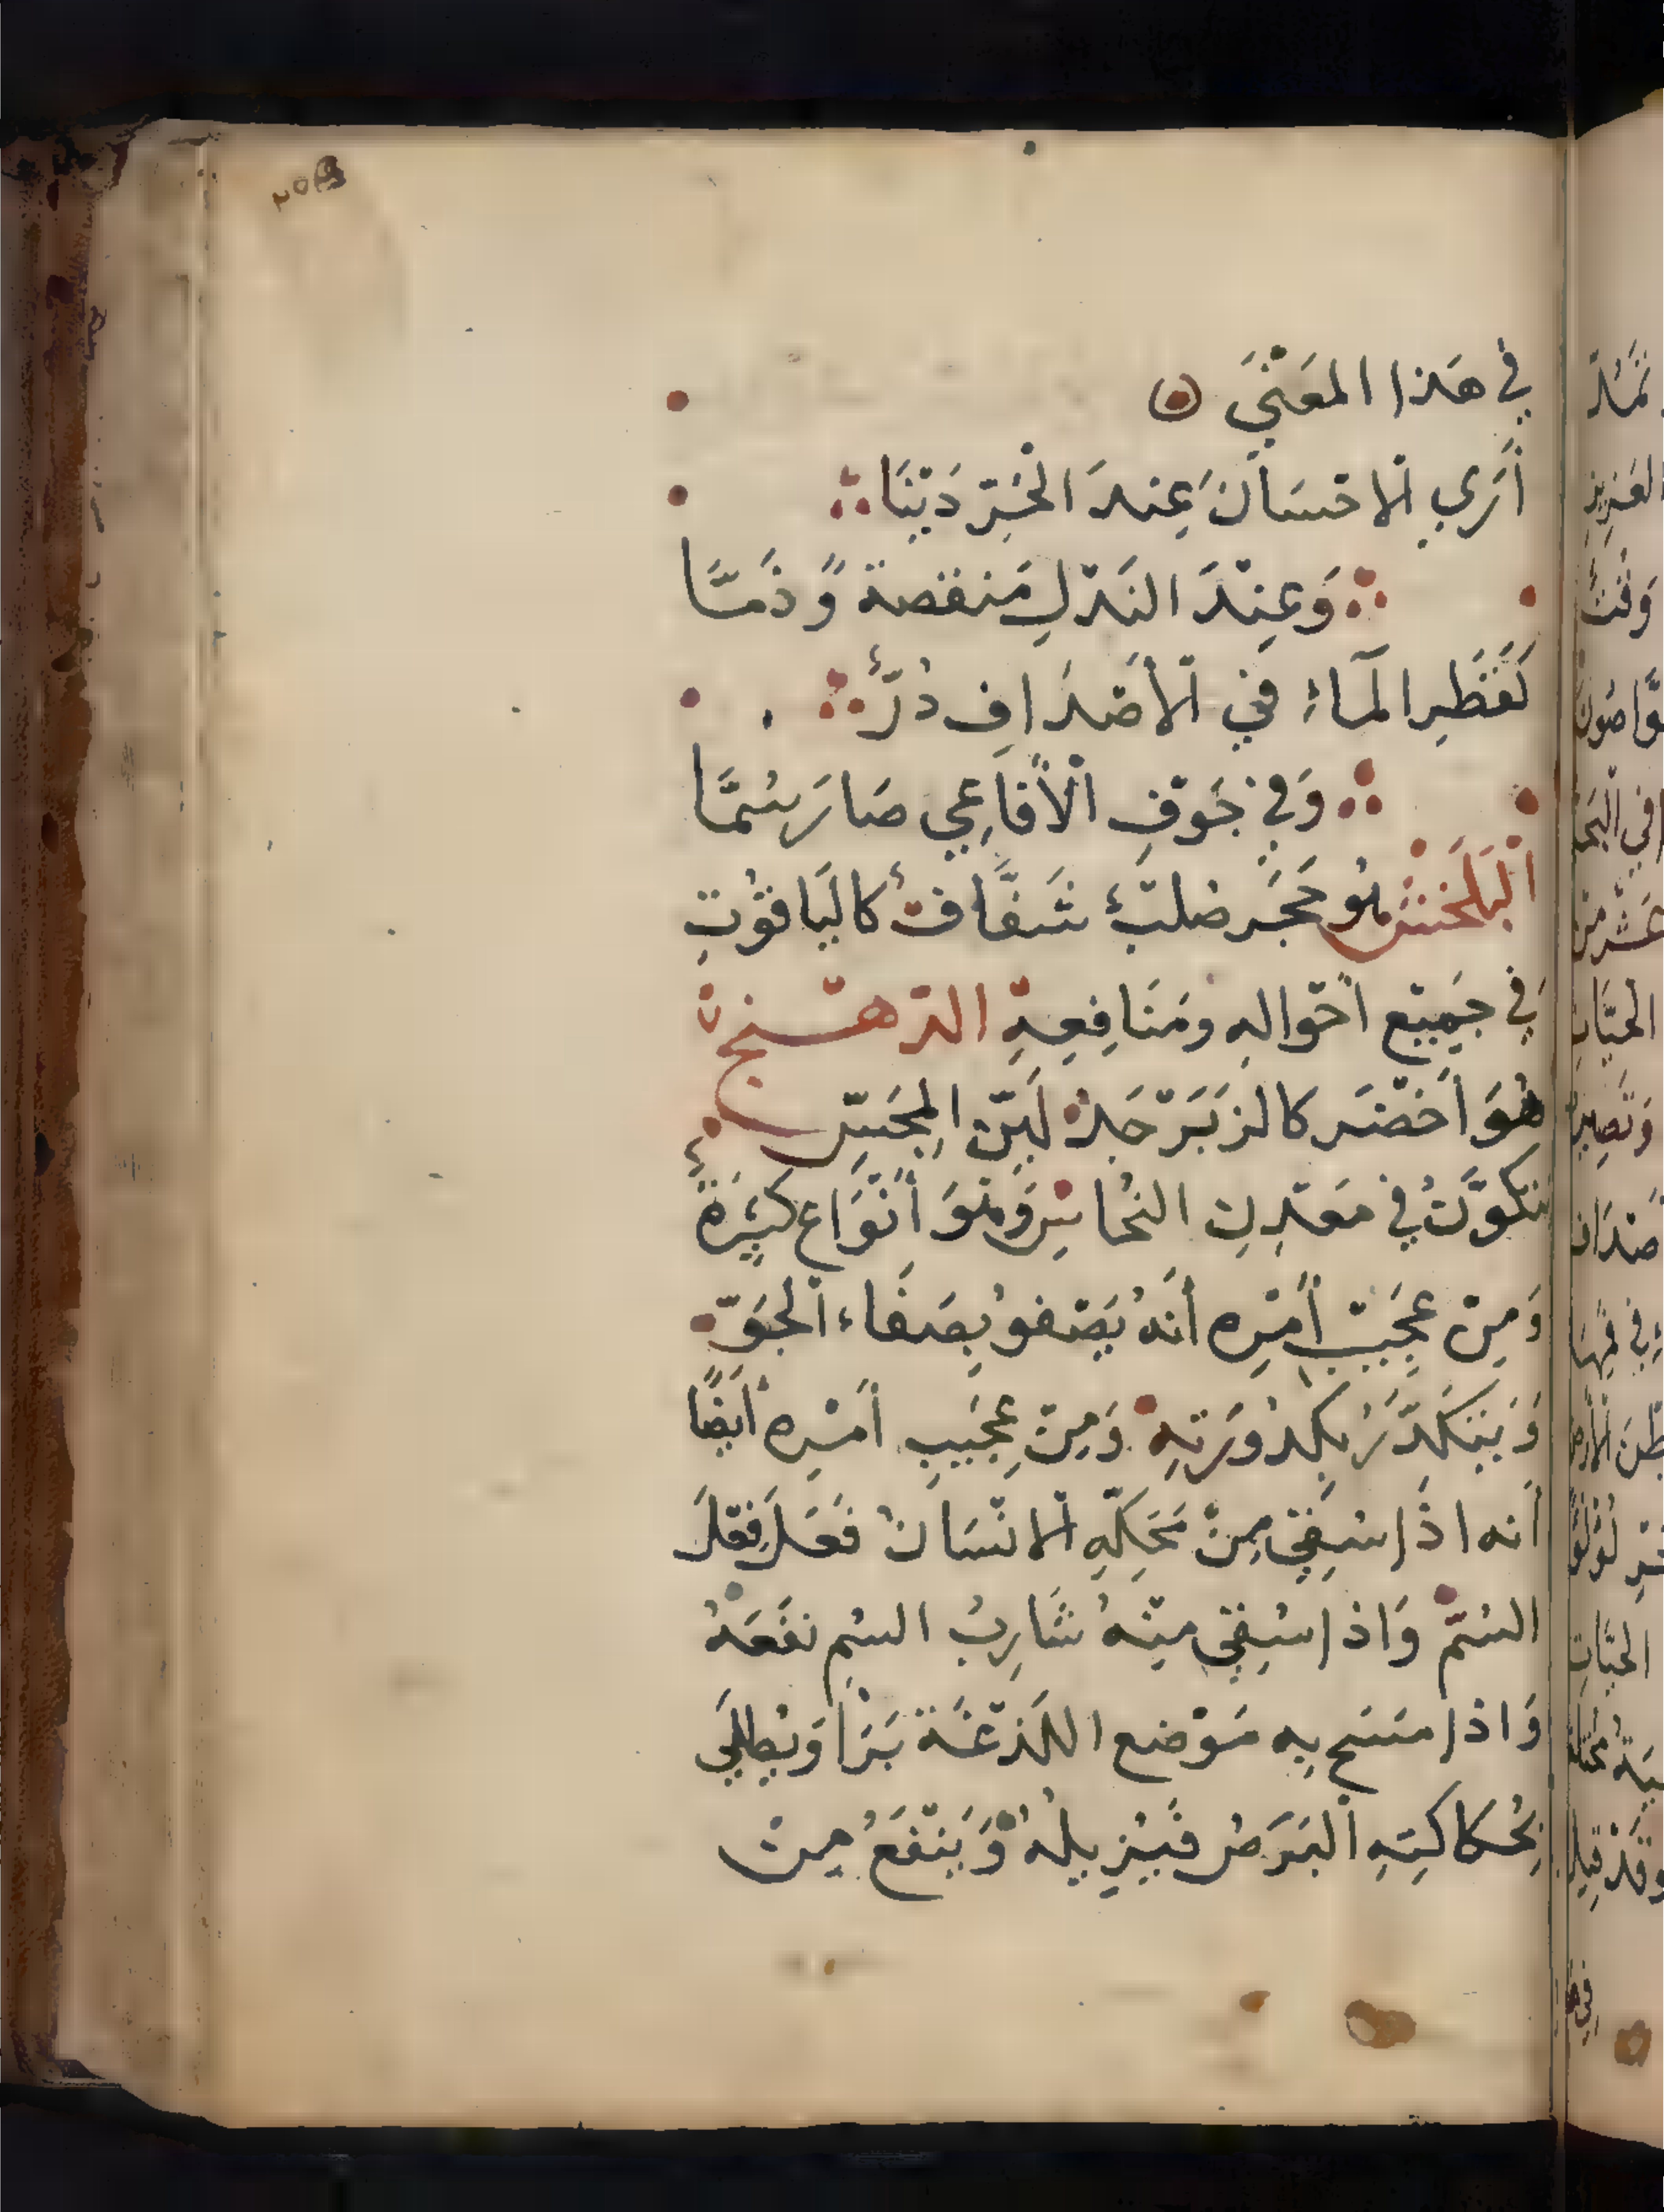 في هَذا المَعْنَي
أَرَي الاحْسَانَ عِندَ الْحُرِّ دَيْنَا
وَعِنْدَ النَذْلِ مَنقصة وَّذَمَّا
كَقَطْرِ المَآءِ في الأَصْدَافِ دُرٌّ
وَفي جَوْفِ الْأَفَاعِي صَارَ سُمَّا
الْبَلَخْش هُو حَجَر صُلبٌ شَفَّافٌ كالْيَاقُوْتِ
في جَمِيْعِ احْوالهِ ومَنَافِعِهِ الدّهْنج
هُوَ اَخْضَر كالزبَرْجَدْ لَيِّن المِجَسِّ
يتكَوَّنُ في مَعْدِنِ النُحَاسِ وَهُوَ أَنْوَاع كَثِيْرَةٌ
وَمِنْ عَجِيْبِ أَمْرِه أَنهُ يَصْفو بِصَفَاءِ الْجَوّ
وَيَتَكَدّرُ بِكدُورَتِهِ وَمِنْ عَجِيبِ أَمْرِه أَيضًا
أَنه اذَا سُقِيَ مِنْ مَحَكِّهِ الانْسَانُ فَعَلَ فِعْلَ
السُّمّ وَاذا سُقِيَ مِنْهُ شَارِبُ السُّمِ نَفَعَهُ
وَاذا مَسَح بِه مَوْضع اللَدْغَة بَرَا وَيُطلَي
بحُكَاكَتِهِ الْبَرَصُ فيُزِيلهُ وَيَنْفَعُ مِنْ